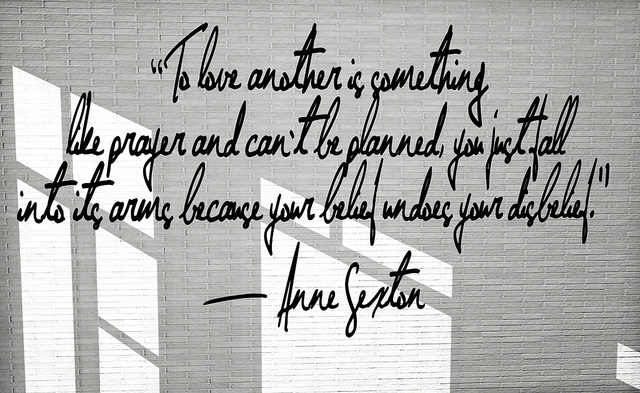 “To love another is something
like prayer and can't be planned, you just fall
into its arms because your belief undoes your disbelief.”
— Anne Sexton